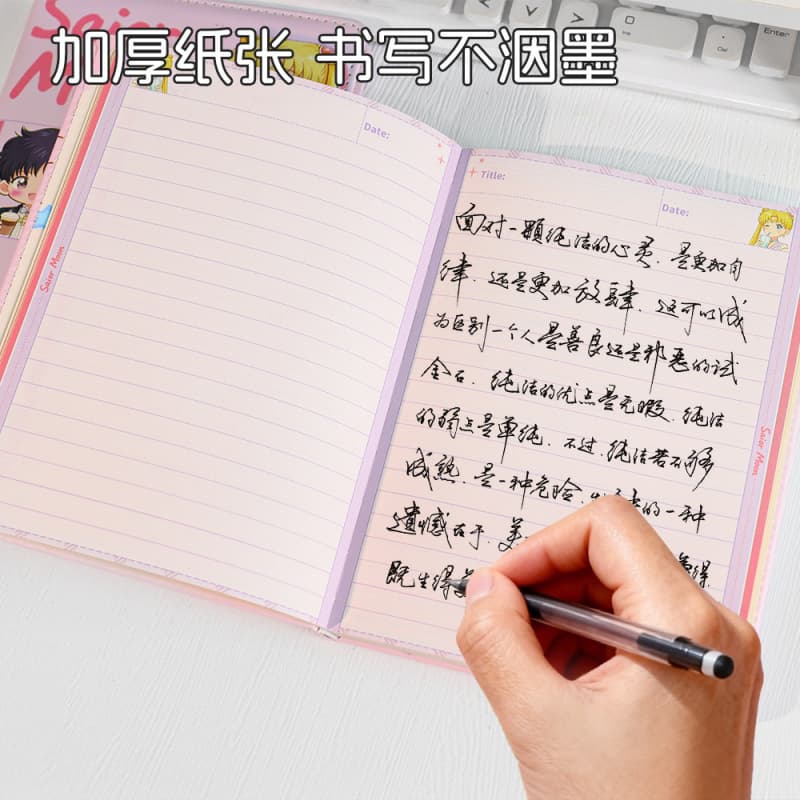 加厚纸张 书写不洇墨
Sailor
Date:
Title:
Date:
面对一颗纯洁的心灵，是更加自
律，还是更加放肆，这可以成
为区别一个人是善良还是邪恶的试
金石，纯洁的优点是无暇，纯洁
的弱点是单纯，不过，纯洁若不够
成熟，是一种危险，的一种
遗憾在于，美
既生得美
Saior Moon
Saior Moon
Enter
Ctrl